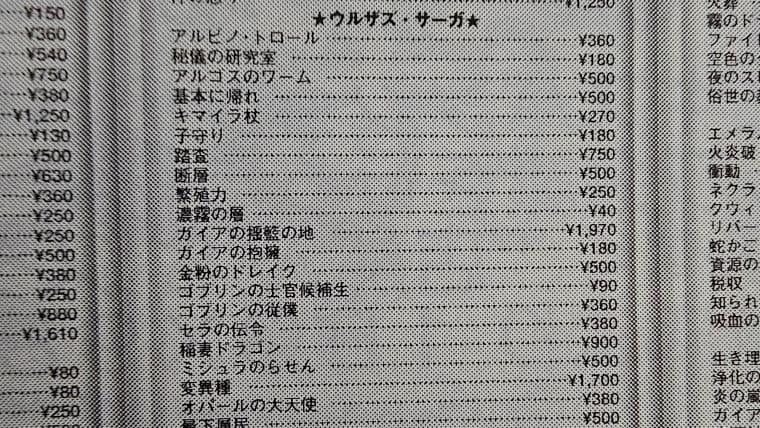 ¥150
¥360
¥540
¥750
¥380
¥1,250
¥130
¥500
¥630
¥360
¥250
¥250
¥500
¥380
¥250
¥880
¥1,610
¥80
¥80
¥250
¥1,250
★ウルザズ・サーガ★
アルビノ・トロール ¥360
秘儀の研究室 ¥180
アルゴスのワーム ¥500
基本に帰れ ¥500
キマイラ杖 ¥270
子守り ¥180
踏査 ¥750
断層 ¥500
繁殖力 ¥250
濃霧の層 ¥40
ガイアの揺籃の地 ¥1,970
ガイアの抱擁 ¥180
金粉のドレイク ¥500
ゴブリンの士官候補生 ¥90
ゴブリンの従僕 ¥360
セラの伝令 ¥380
稲妻ドラゴン ¥900
ミシュラのらせん ¥500
変異種 ¥1,700
オパールの大天使 ¥380
最下層民 ¥500
火葬
霧のド
ファイ
空色の
夜のス
俗世の
エメラ
火炎破
衝動
ネクラ
クウィ
リバー
蛇かご
資源の
税収
知られ
吸血の
生き埋
浄化の
炎の嵐
ガイア